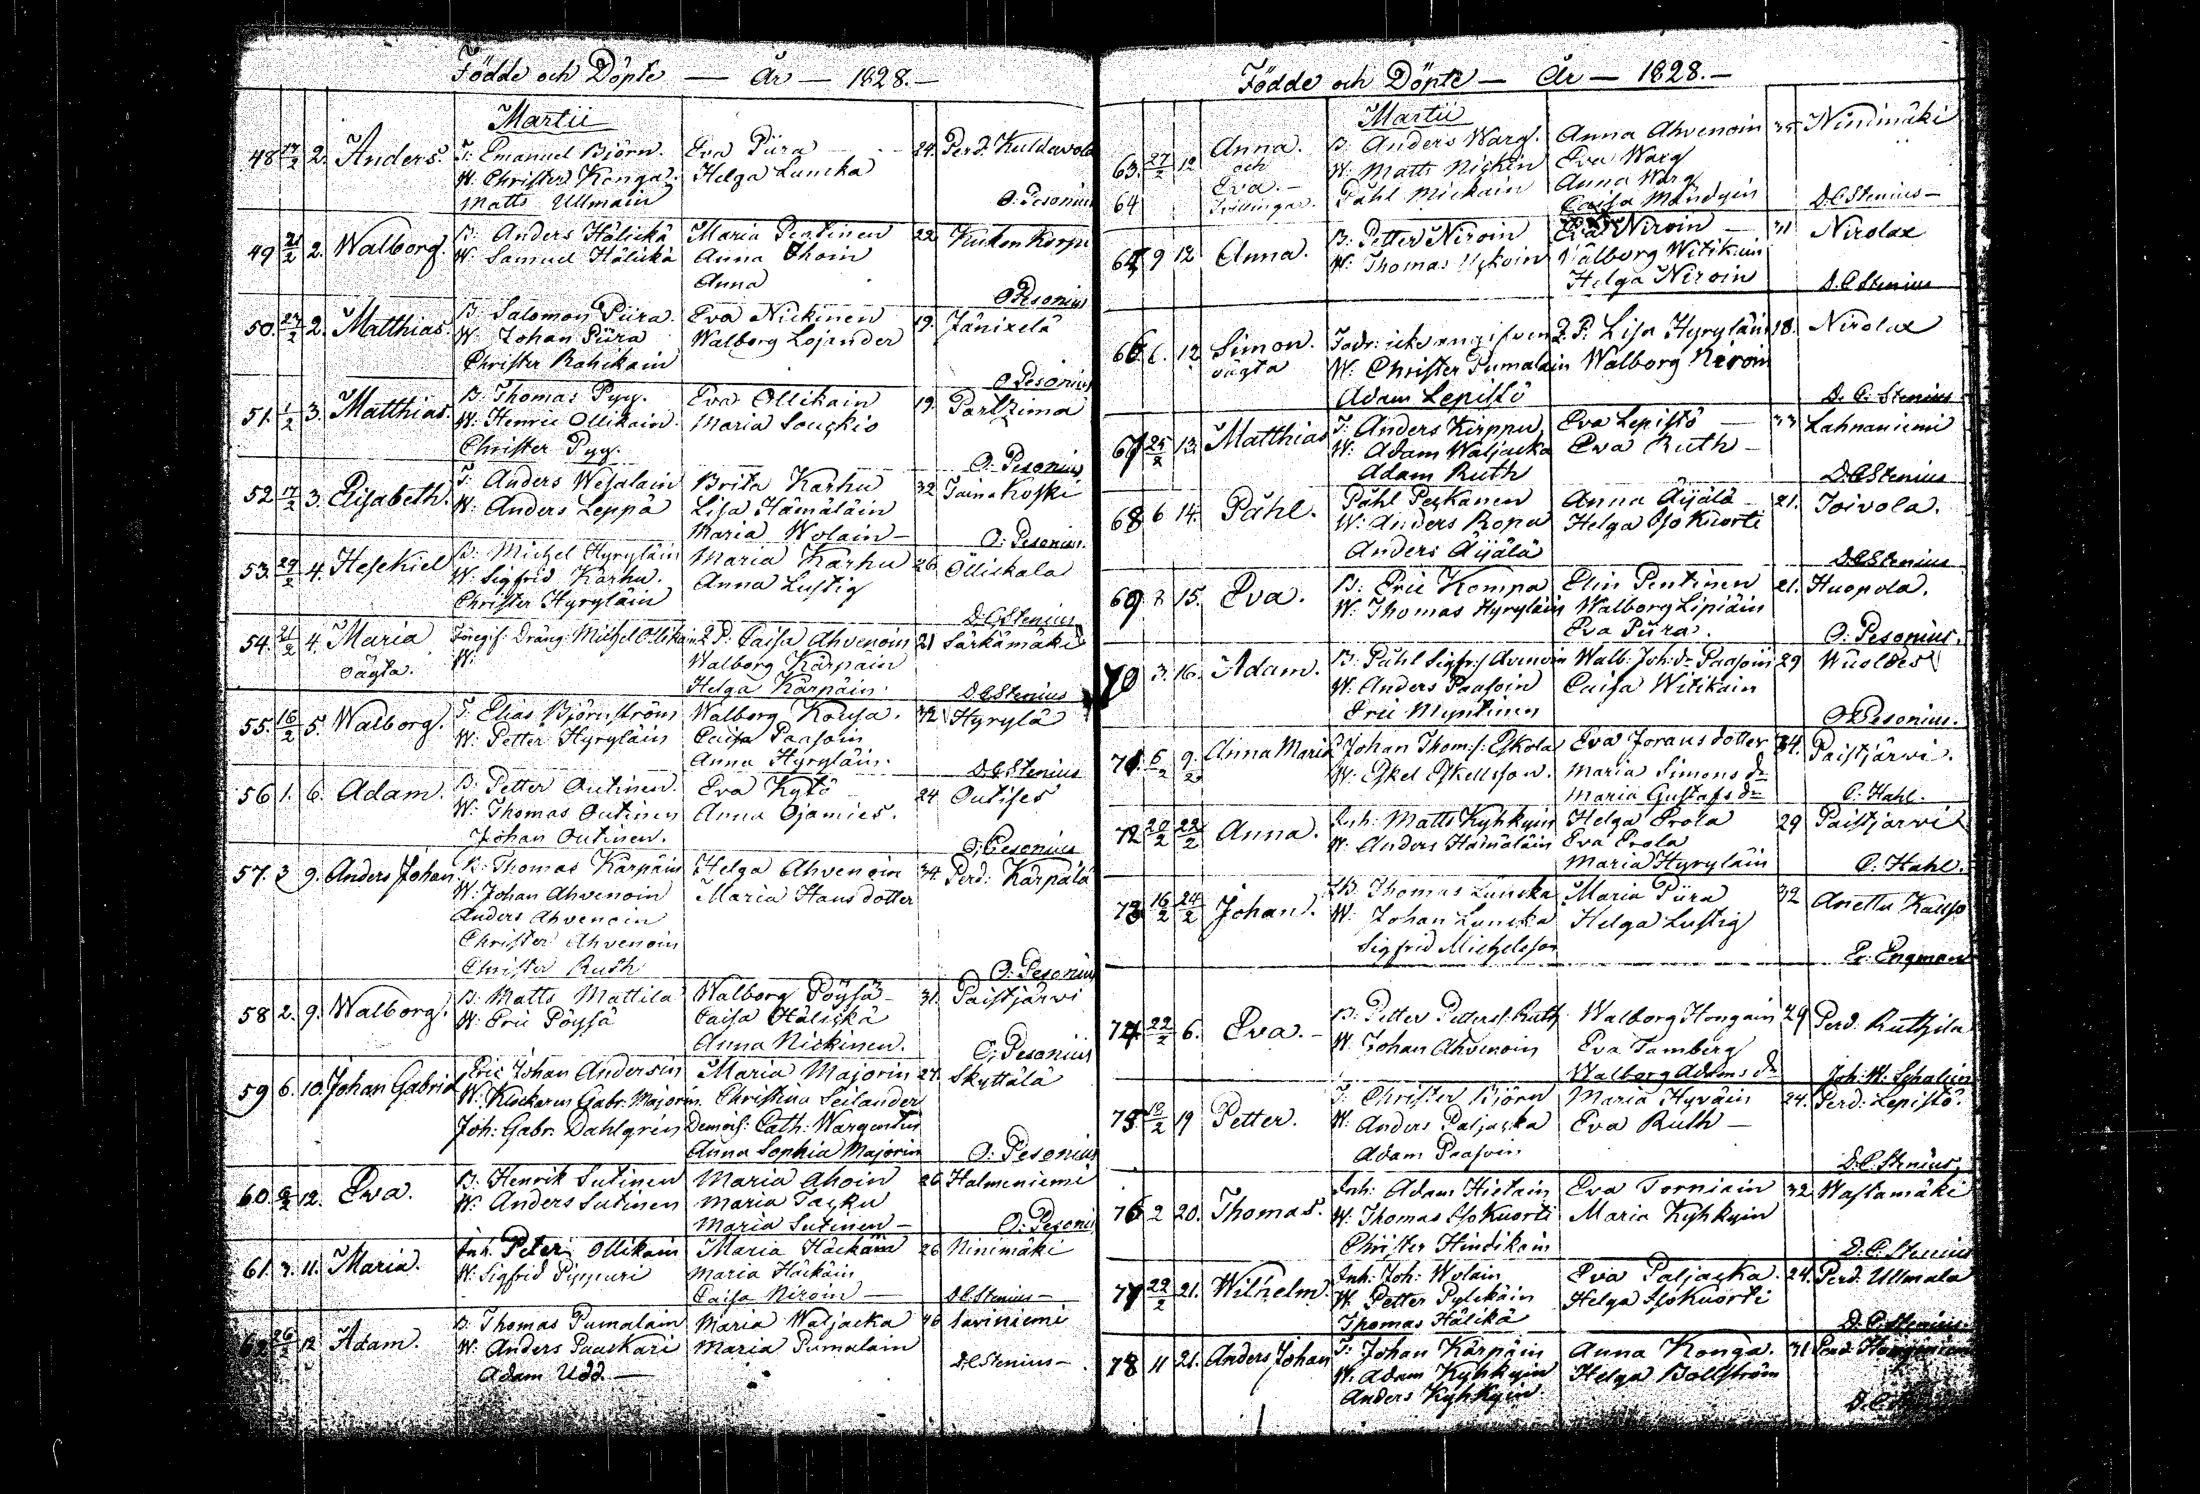 Födde och Döpte — År — 1828.—
Martii
48 17/2 2. Anders. T: Emanuel Björn. Eva Piira 24. Perd. Kuldavola
W. Christer Konga. Helga Lunska
Matts Ullmain O: Pesonius
49 21/2 2. Walborg. B: Anders Hälickä Maria Pentinen 22 Kukon Korpi
W: Samuel Hälickä Anna Ihoin
Anna O Pesonius
50. 27/2 2. Matthias. B: Salomon Piira. Eva Nickinen 19. Jänixelä
W. Johan Piira Walborg Lojander
Christer Rahikain O Pesonius
51. 1/2 3. Matthias. B. Thomas Pyy. Eva Ollikain 19. Partzima
W: Henric Ollikain. Maria Souckio
Christer Pyy. O: Pesonius
52 17/2 3. Elisabeth. T: Anders Wesalain Brita Karhu 32 Taina Koski
W: Anders Leppä Lisa Hämäläin
Maria Wolain— O: Pesonius.
53. 29/2 4. Hesekiel B: Michel Hyryläin Maria Karhu 26 Ölliskala
W. Sigfrid Karhu. Anna Lustig
Christer Hyryläin D. C Stenius
54. 21/2 4. Maria Föregif: Dräng: Michel Ollikain Q. P. Caisa Ahvenoin 21 Särkämäki
oägta. W: Walborg Kärpäin
Helga Kärpäin. D C Stenius
55. 16/2 5. Walborg. T. Elias Björnström Walborg Konsa. 32 Hyrylä
W: Petter Hyryläin Caisa Paasoin
Anna Hyryläin. D C Stenius
56 1. 6. Adam. B: Petter Outinen. Eva Kytö 24 Outises
W: Thomas Outinen Anna Ojamies.
Johan Outinen. O; Pesonius
57. 3 9. Anders Johan B: Thomas Kärpäin Helga Ahvenoin 34. Perd: Kärpälä
W. Johan Ahvenoin Maria Hansdotter
Anders Ahvenoin
Christer Ahvenoin
Christer Ruth O: Pesonius
58 2. 9. Walborg. B: Matts Mattila Walborg Pöysä— 31. Paistjärvi
W. Eric Pöysä Caisa Hälickä
Anna Nickinen. O; Pesonius
59 6. 10. Johan Gabriel Eric Johan Andersin Maria Majorin 27. Skyttälä
W. Klockaren Gabr. Majorin. Christina Seilander
Joh: Gabr. Dahlgren Demois: Cath: Wargentin
Anna Sophia Majorin O: Pesonius
60. 12. Eva. B: Henrik Sutinen Maria Ahoin 26 Halmeniemi
W: Anders Sutinen Maria Tacku
Maria Sutinen— O: Pesoni
61. 3. 11. Maria. Inh. Peter Ollikain Maria Häckäin 26 Ninimäki
W: Sigfrid Pippuri Maria Häckäin
Caisa Niroin— D C Stenius—
62 26/2 12 Adam. B: Thomas Pumalain Maria Waljacka 46 Saviniemi
W: Anders Paaskari Maria Pumalain
Adam Udd— D. C Stenius—
Födde och Döpte — År — 1828.—
Martii
63. 27/2 12 Anna. B. Anders Warg. Anna Ahvenoin 35 Nindimäki
och W: Matts Nickin Eva Warg
64 Eva.— Påhl Mickain Anna Warg
Tvillingar. Caisa Mändyin D. C Stenius—
65 9 12 Anna. B: Petter Niroin Eva Niroin— 31 Nirolax
W: Thomas Walborg Witikain
Helga Niroin D. C Stenius
66 6. 12 Simon. Fadr: icke angifven Q. P. Lisa Hyryläin 18. Nirolax
oägta W: Christer Pumalain Walborg Niroin
Adam Lepistö D. C. Stenius
67 25/2 13 Matthias T: Anders Kirppu, Eva Lepistö— 33 Lahnaniemi
W: Adam Waljacka Eva Ruth—
Adam Ruth D. C Stenius
68 6 14. Påhl. Påhl Peskanen Anna Äijälä 21. Toivola.
W: Anders Ropa Helga Iso Kuorti
Anders Äijälä D C Stenius
69. 7 15. Eva. B: Eric Kompa Elin Pentinen 21. Huopola.
W: Thomas Hyryläin Walborg Lipiäin
Eva Piira. O: Pesonius.
70 3. 16. Adam. B: Påhl Sigfr: Avenoin Walb: Joh: dr Paasoin 29 Wuoldes
W: Anders Paasoin Caisa Witikain
Eric Myntinen O Pesonius.
71. 6/2 9/2 Anna Maria Johan Thoms: Eskola Eva Joransdotter 34. Paistjärvi.
W: Eskel Eskellsson. Maria Simons dr
Maria Gustafs dr C: Hahl.
72 20/2 22/2 Anna. Inh: Matts Kyhkyin Helga Erola 29 Paistjarvi
W: Anders Hämäläin Eva Erola
Maria Hyryläin C: Hahl.
73 16/2 24/2 Johan. B: Thomas Lunska Maria Piira 32 Anettu Kallio
W: Johan Lunska Helga Lustig
Sigfrid Michelsson Er: Engman
74. 22/2 6. Eva.— B: Petter Petters: Ruth Walborg Hongain 29 Perd: Ruthila
W Johan Ahvenoin Eva Tamberg
Walborg Adams dr Joh: W: Schalien
75 18/2 19 Petter. T: Christer Björn Maria Hyväin 24. Perd: Lepistö.
W: Anders Paljacka Eva Ruth—
Adam Paasoin D. C. Stenius
76 2 20. Thomas. Inh: Adam Hietain Eva Torniain 32 Wastamäki
W. Thomas Iso Kuorti Maria Kyhkyin
Christer Hindikain D. C. Stenius
77 22/2 21. Wilhelm. Inh: Joh: Wolain Eva Paljacka. 24. Perd: Ullmala
W Petter Pylikäin Helga Iso Kuorti
Thomas Hälikä D. C. Stenius.
78 11 21. Anders Johan T: Johan Kärpäin Anna Konga. 31 Perd:
W. Adam Kyhkyin Helga Bollström
Anders Kyhkyin. D. C.